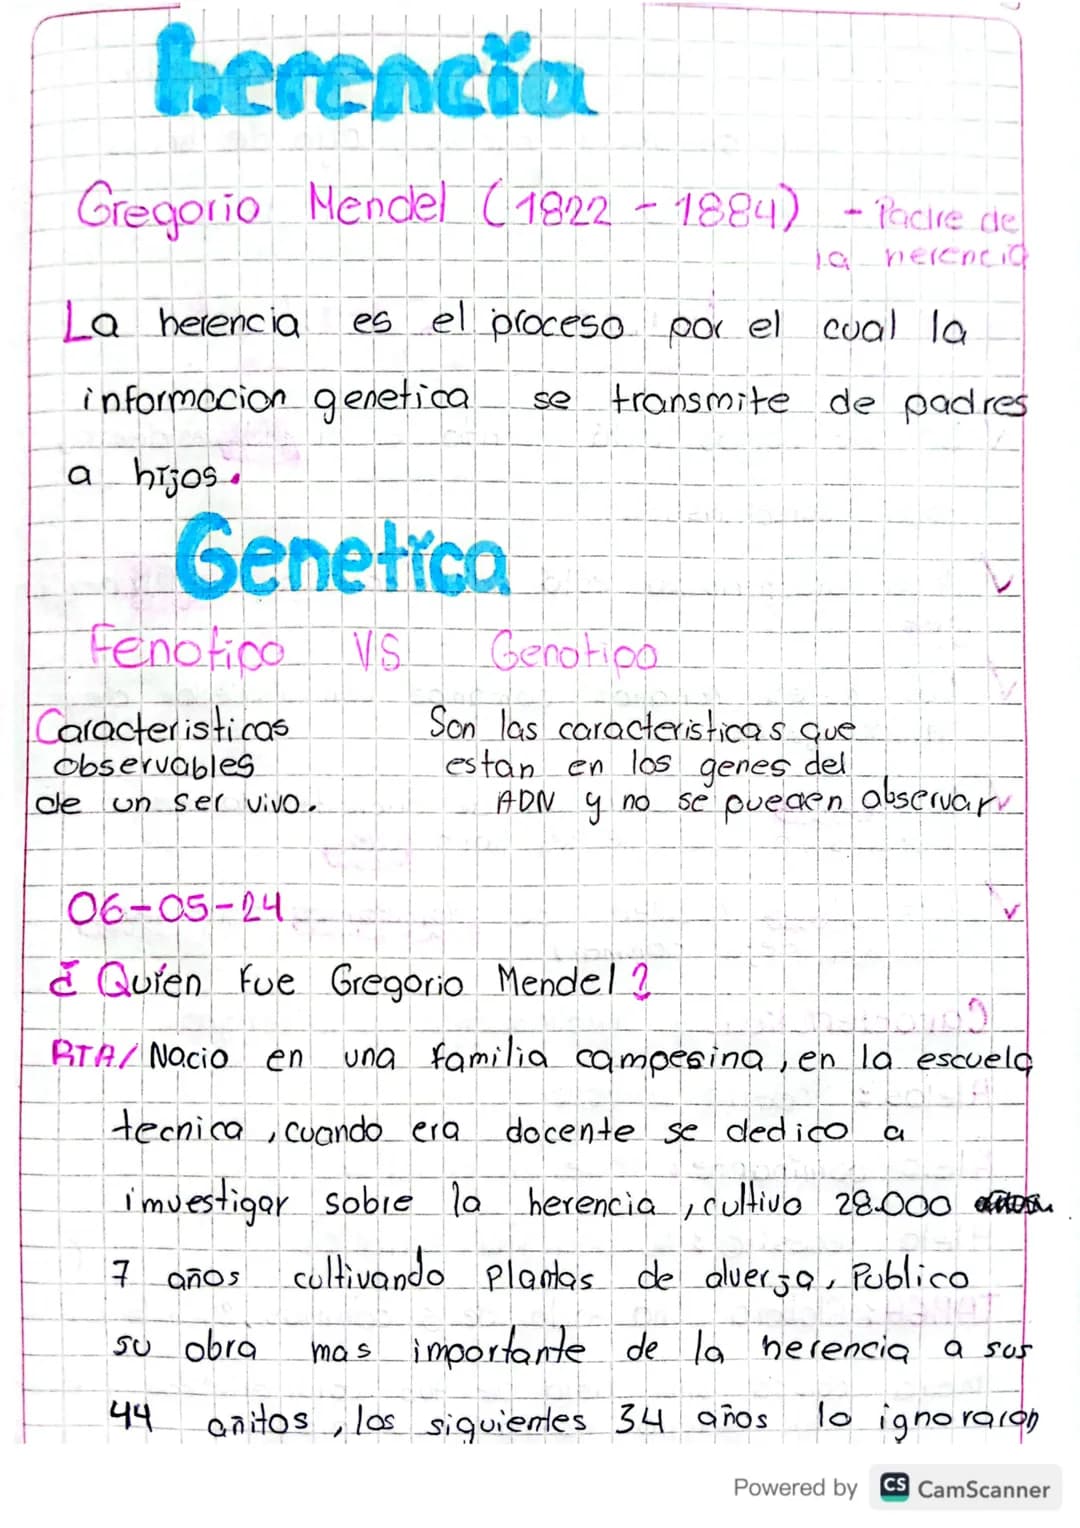 herencia
Gregorio Mendel (1822 - 1884) - Padre de
la herencia
La herencia es el proceso por el cual la
informacion genetica se transmite de padres
a hijos.
Genetica
Fenotipo VS Genotipo
Caracteristicas
observables
de un ser vivo.
Son las caracteristicas que
estan en los genes del
ADN y no se pueden observar
06-05-24
¿Quien fue Gregorio Mendel?
RTA/ Nacio en una familia campesina, en la escuela
tecnica, cuando era docente se dedico a
imvestigar sobre la herencia, cultivo 28.000
7 años cultivando Plantas de alverja, Publico
su obra mas importante de la herencia a sus
44 añitos, los siguientes 34 años lo ignoraron
Powered by CS CamScanner